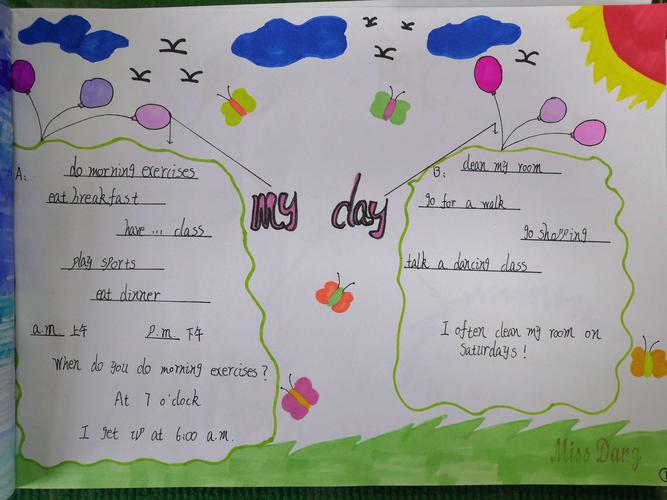 my day
A:
do morning exercises
eat breakfast
have ... class
play sports
eat dinner
a.m. 上午 P.m. 下午
When do you do morning exercises?
At 7 o'clock
I get up at 6:00 a.m.
B:
clean my room
go for a walk
go shopping
talk a dancing class
I often clean my room on
Saturdays!
Miss Dang